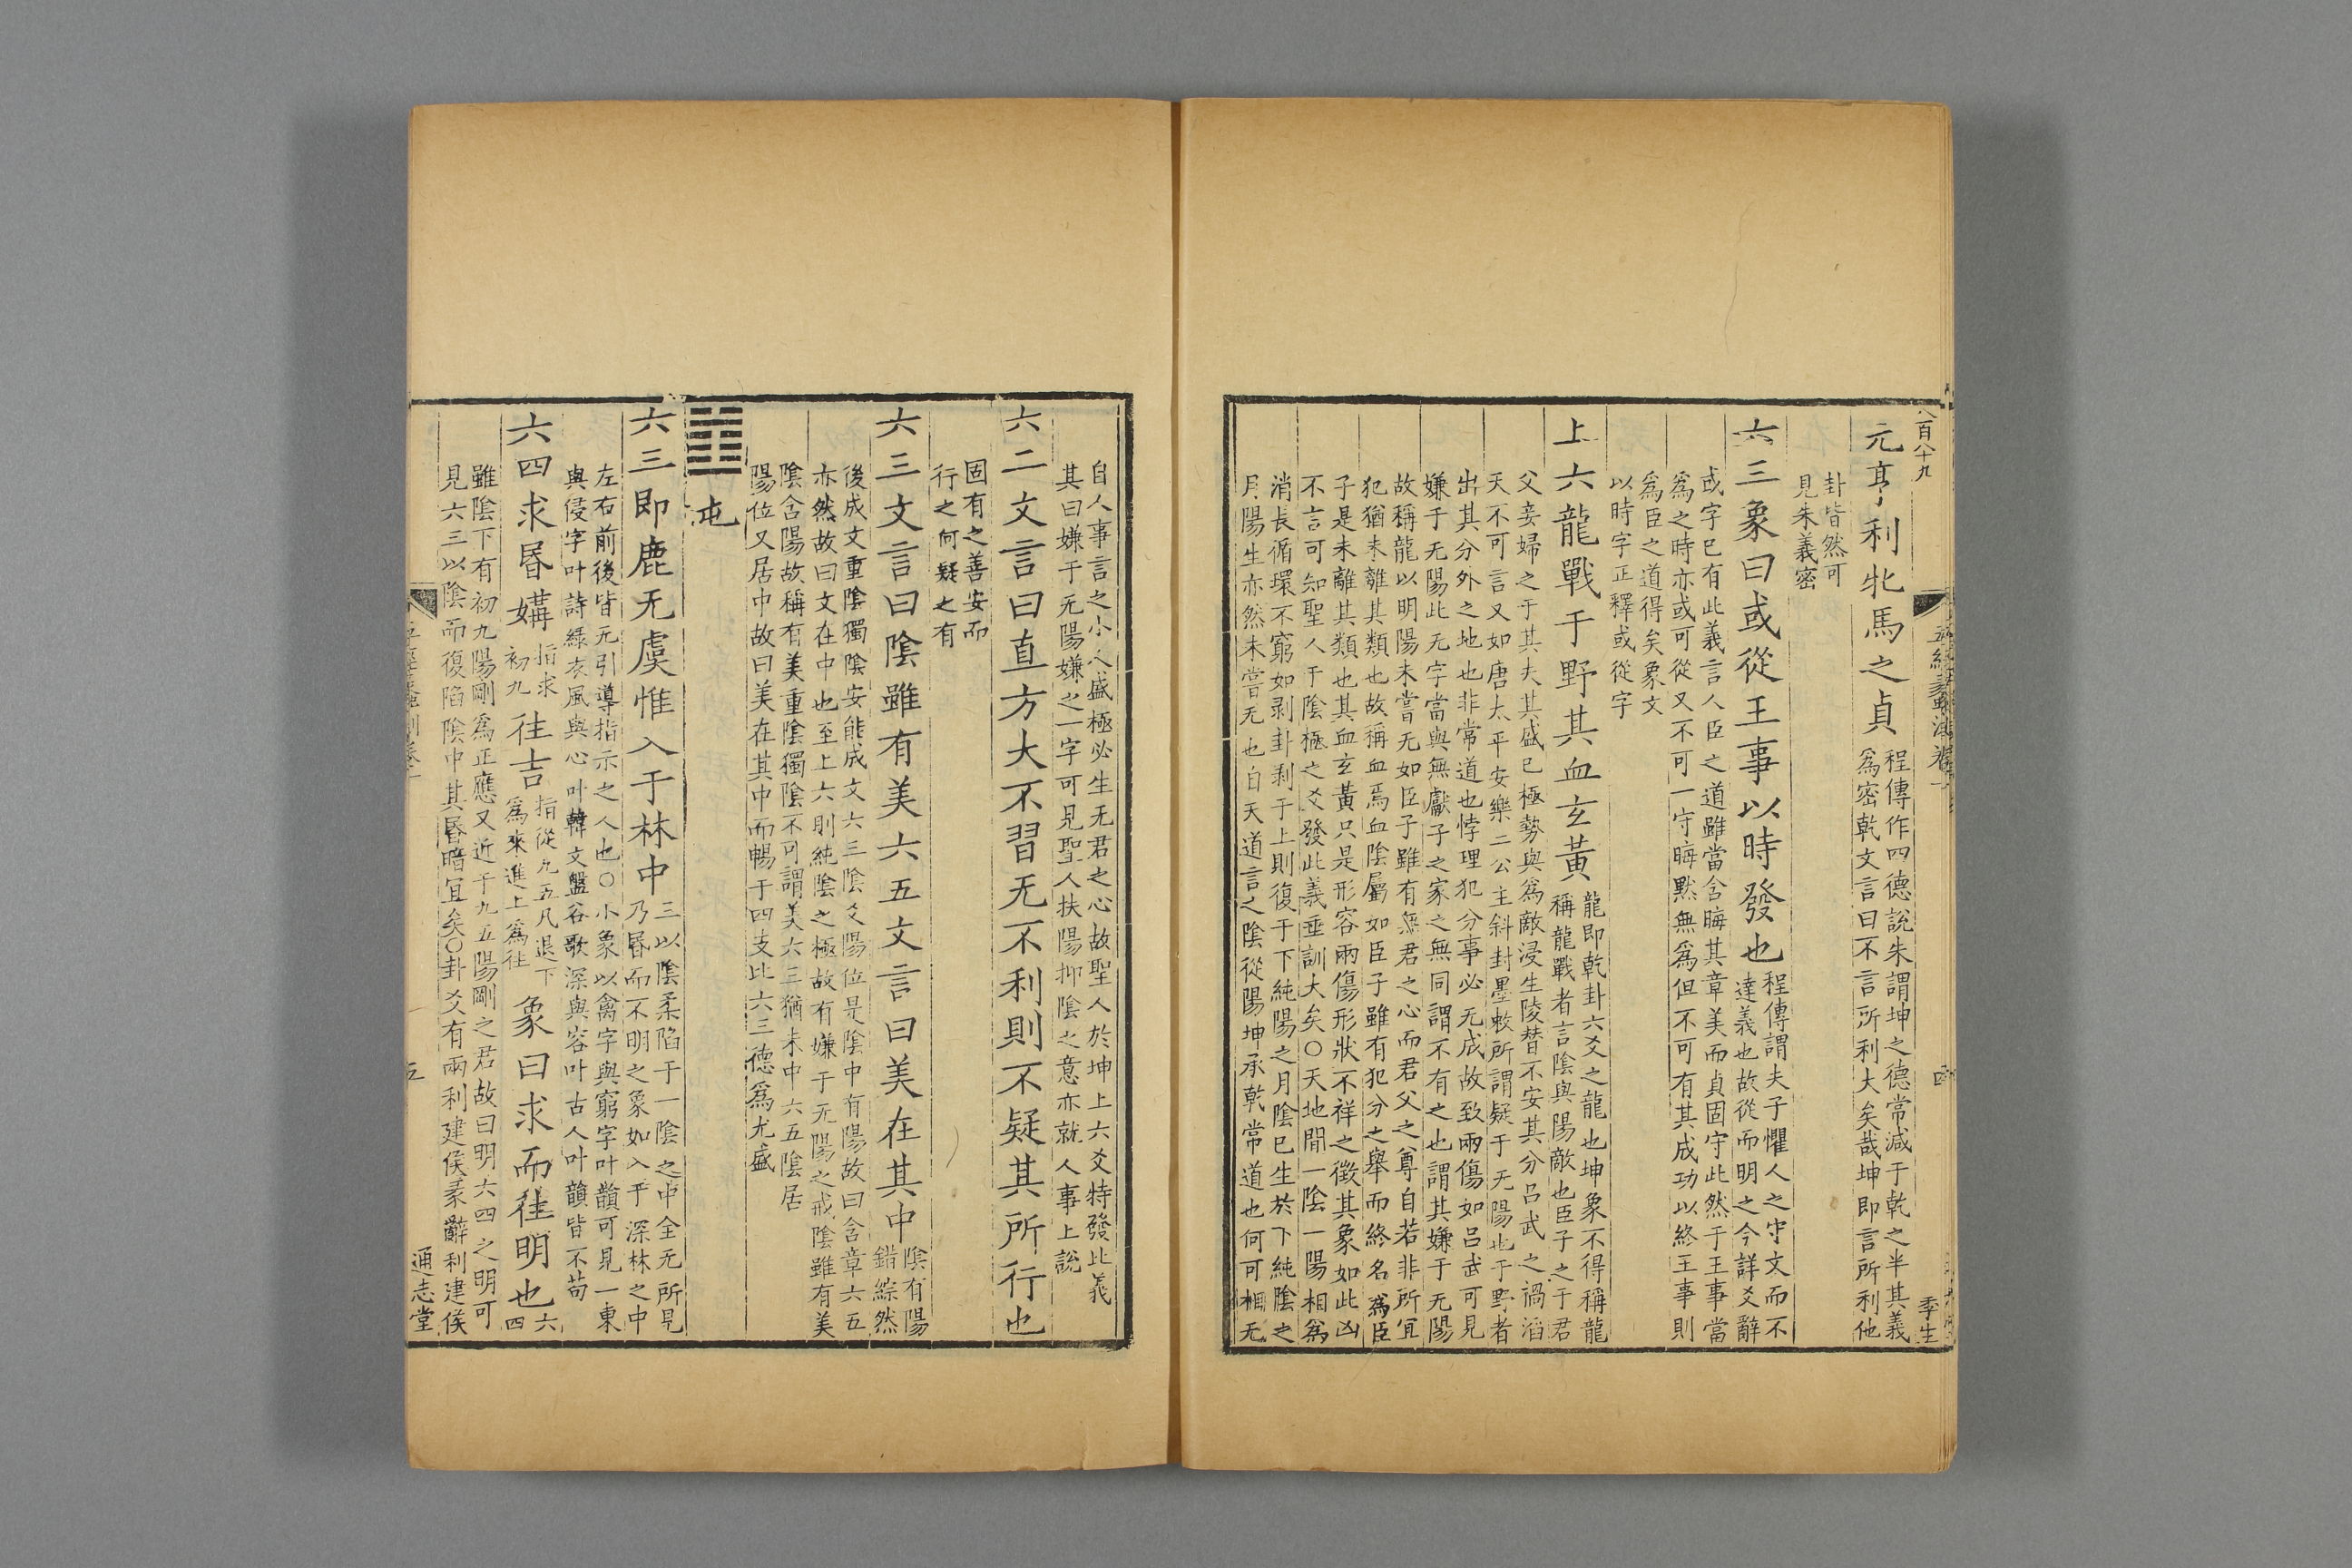 八百八十九
季生
元亨利牝馬之貞
程傳作四德說朱謂坤之德常減于乾之半其義
爲密乾文言曰不言所利大矣哉坤即言所利他
卦皆然可
見朱義密
六三象曰或從王事以時發也
程傳謂夫子懼人之守文而不
達義也故從而明之今詳爻辭
或字已有此義言人臣之道雖當含晦其章美而貞固守此然于王事當
爲之時亦或可從又不可一守晦黙無爲但不可有其成功以終王事則
爲臣之道得矣象文
以時字正釋或從字
上六龍戰于野其血玄黃
龍即乾卦六爻之龍也坤象不得稱龍
稱龍戰者言陰與陽敵也臣子之于君
父妾婦之于其夫其盛已極勢與爲敵浸生陵替不安其分呂武之禍滔
天不可言又如唐太平安樂二公主斜封墨敕所謂疑于无陽也于野者
出其分外之地也非常道也悖理犯分事必无成故致兩傷如呂武可見
嫌于无陽此无字當與無獻子之家之無同謂不有之也謂其嫌于无陽
故稱龍以明陽未嘗无如臣子雖有無君之心而君父之尊自若非所宜
犯猶未離其類也故稱血焉血陰屬如臣子雖有犯分之舉而終名爲臣
子是未離其類也其血玄黃只是形容兩傷形狀不祥之徵其象如此凶
不言可知聖人于陰極之爻發此義垂訓大矣〇天地間一陰一陽相爲
消長循環不窮如剥卦剥于上則復于下純陽之月陰已生於下純陰之
月陽生亦然未嘗无也自天道言之陰從陽坤承乾常道也何可相无
自人事言之小人盛極必生无君之心故聖人於坤上六爻特發此義
其曰嫌于无陽嫌之一字可見聖人扶陽抑陰之意亦就人事上說
六二文言曰直方大不習无不利則不疑其所行也
固有之善安而
行之何疑之有
六三文言曰陰雖有美六五文言曰美在其中
陰有陽
錯綜然
後成文重陰獨陰安能成文六三陰爻陽位是陰中有陽故曰含章六五
亦然故曰文在中也至上六則純陰之極故有嫌于无陽之戒陰雖有美
陰含陽故稱有美重陰獨陰不可謂美六三猶未中六五陰居
陽位又居中故曰美在其中而暢于四支比六三德爲尤盛
屯
六三即鹿无虞惟入于林中
三以陰柔陷于一陰之中全无所見
乃昬而不明之象如入乎深林之中
左右前後皆无引導指示之人也〇小象以禽字與窮字叶韻可見一東
與侵字叶詩綠衣風與心叶韓文盤谷歌深與容叶古人叶韻皆不苟
六四求昬媾
指求
初九
往吉
指從九五凡退下
爲來進上爲往
象曰求而往明也
六
四
雖陰下有初九陽剛爲正應又近于九五陽剛之君故曰明六四之明可
見六三以陰而復陷陰中其昬暗宜矣〇卦爻有兩利建侯彖辭利建侯
五
通志堂